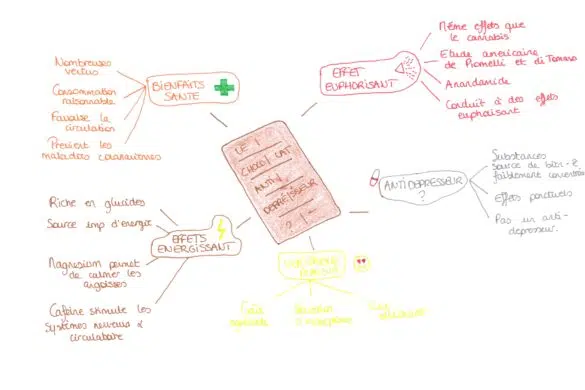 LE
CHOCOLAT
ANTI
DEPRESSEUR
? !
BIENFAITS
SANTE
Nombreuses
vertus
Consommation
raisonnable
Favorise la
circulation
Previent les
maladies
EFFET
EUPHORISANT
Même effets que
le cannabis
Etude americaine
de Piomelli et di Tomaso
Anandamide
Conduit à des effets
euphorisant
ANTIDEPRESSEUR
?
Substances
source de bien-ê
faiblement concentrées
Effets ponctuels
Pas un anti-
depresseur.
EFFETS
ENERGISSANT
Riche en glucides
Source imp d'energie
Magnesium permet
de calmer les
angoisses
Caféine stimule les
systèmes nerveux &
circulatoire